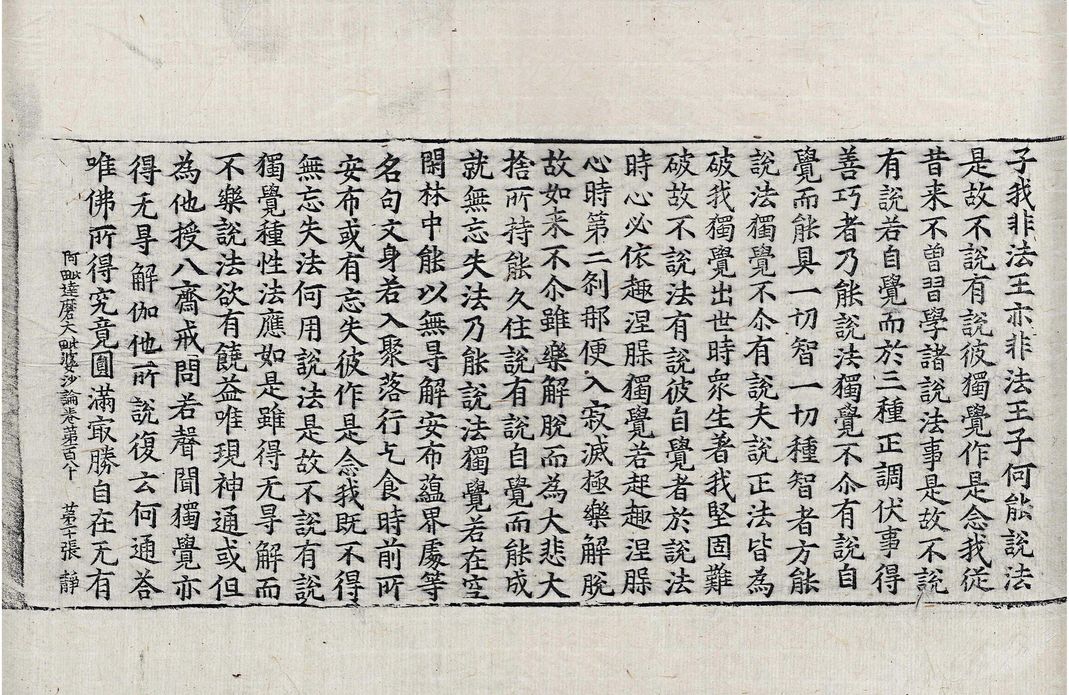 子我非法王亦非法王子何能說法
是故不說有說彼獨覺作是念我従
昔来不曽習學諸說法事是故不說
有說若自覺而於三種正調伏事得
善巧者乃能說法獨覺不尒有說自
覺而能具一切智一切種智者方能
說法獨覺不尒有說夫說正法皆為
破我獨覺出世時衆生著我堅固難
破故不說法有說彼自覺者於說法
時心必依趣涅槃獨覺若起趣涅槃
心時第二刹那便入寂滅極樂解脫
故如来不尒雖樂解脫而為大悲大
捨所持能久住說有說自覺而能成
就無忘失法乃能說法獨覺若在空
閑林中能以無㝵解安布蘊界處等
名句文身若入聚落行乞食時前所
安布或有忘失彼作是念我既不得
無忘失法何用說法是故不說有說
獨覺種性法應如是雖得无㝵解而
不樂說法欲有饒益唯現神通或但
為他授八齋戒問若聲聞獨覺亦
得无㝵解伽他所說復云何通答
唯佛所得究竟圓滿㝡勝自在无有
阿毗達磨大毗婆沙論卷第百八十　第十張　靜